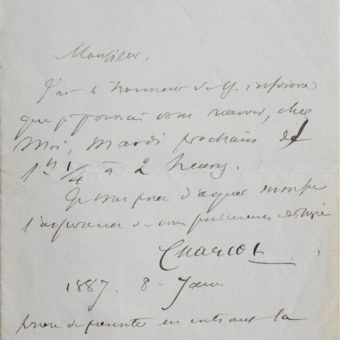 Monsieur,
J'ai l'honneur de v. informer
que je pourrai vous recevoir, chez
moi, mardi prochain de
1h 1/4 à 2 heures.
Je vous prie d'agréer monsieur
l'assurance de ma
Charcot
1887. 8 - Janv.
prière de présenter en entrant la